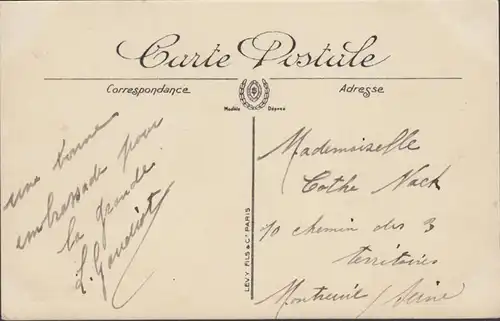 Carte Postale
Correspondance
Adresse
Modèle Déposé
une bonne
embrassade pour
la grande
LEVY FILS & Cie PARIS
Mademoiselle
Cothe Nack
70 chemin des 3
territoires
Montreuil / Seine